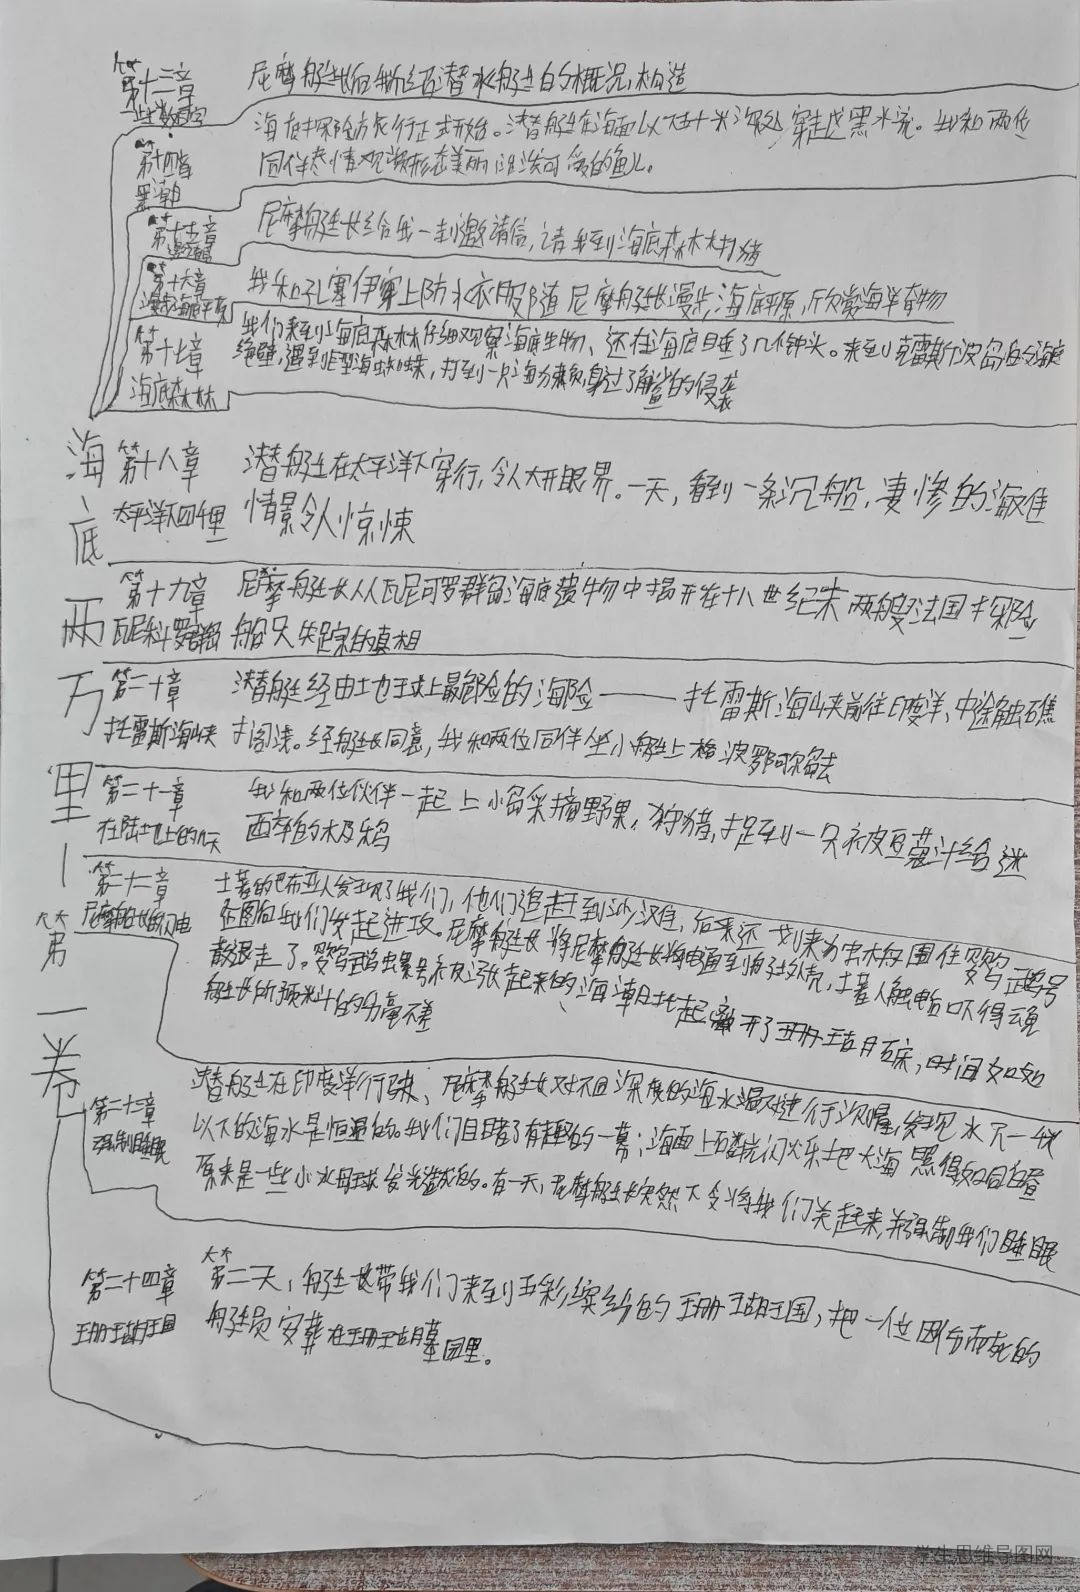 第十三章
一些数字
尼摩艇长向我介绍潜水艇的概况、构造
第十四章
黑潮
海底探险旅行正式开始。潜艇在海面以下五十米深处，穿越黑水流。我和两位
同伴尽情观赏形态美丽的鱼儿。
第十五章
邀请信
尼摩艇长给我一封邀请信，请我到海底森林打猎
第十六章
漫步海底平原
我和孔塞伊穿上防水衣服随尼摩艇长漫步海底平原，欣赏海洋奇物
第十七章
海底森林
我们来到海底森林仔细观察海底生物、还在海底睡了几个钟头。来到克雷斯波岛的海底
绝壁，遇到巨型海蜘蛛，打到一只海獭，躲过了角鲨的侵袭
海底两万里—第一卷
第十八章
太平洋下四千里
潜艇在太平洋下穿行，令人大开眼界。一天，看到一条沉船，凄惨的海难
情景令人惊悚
第十九章
瓦尼科罗群岛
尼摩艇长从瓦尼可罗群岛海底遗物中揭开在十八世纪末两艘法国探险
船只失踪的真相
第二十章
托雷斯海峡
潜艇经由地球上最危险的海险——托雷斯海峡前往印度洋、中途触礁
搁浅。经艇长同意，我和两位同伴坐小艇上格波罗阿尔岛去
第二十一章
在陆地上的几天
我和两位伙伴一起上小岛采摘野果，狩猎，捉到一只被豆蔻汁给迷
西卒的木及鸟
第二十二章
尼摩船长的闪电
土著的巴布亚人发现了我们，他们追赶到沙滩，后来还划来独木舟围住鹦鹉号
企图向我们发起进攻。尼摩艇长将尼摩艇长将电通到艇外壳，土著人触电后吓得
散退走了。鹦鹉螺号被涨起来的海潮托起离开了珊瑚石床，时间如
艇长所预料的分毫不差
第二十三章
强制睡眠
潜艇在印度洋行驶、尼摩艇长对不同深度的海水温度进行测量，发现水下一
以下的海水是恒温的。我们目睹了有趣的一幕；海面上磷光闪烁把大海照得如同白昼
原来是一些小水母球发光造成的。有一天，尼摩艇长突然下令将我们关起来，并强制我们睡眠
第二十四章
珊瑚王国
第二天，艇长带我们来到五彩缤纷的珊瑚王国，把一位因伤而死的
艇员安葬在珊瑚墓园里。
学生思维导图网